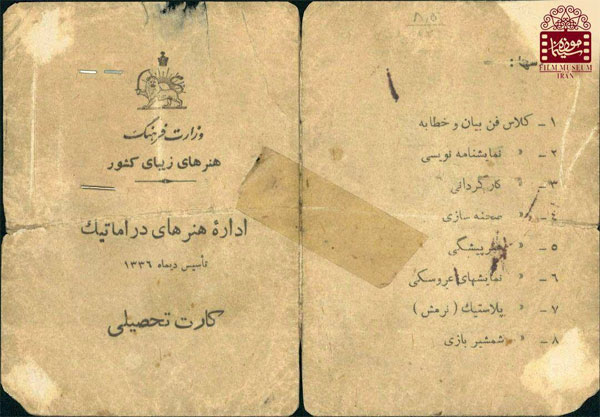 وزارت فرهنگ
هنرهای زیبای کشور
ادارهٔ هنرهای دراماتیک
تأسیس دیماه ۱۳۳۶
کارت تحصیلی
۱ - کلاس فن بیان و خطابه
۲ - « نمایشنامه نویسی
۳ - « کارگردانی
۴ - « صحنه سازی
۵ - « هنرپیشگی
۶ - « نمایشهای عروسکی
۷ - « پلاستیک ( نرمش )
۸ - « شمشیر بازی
موزه سینما
FILM MUSEUM
IRAN